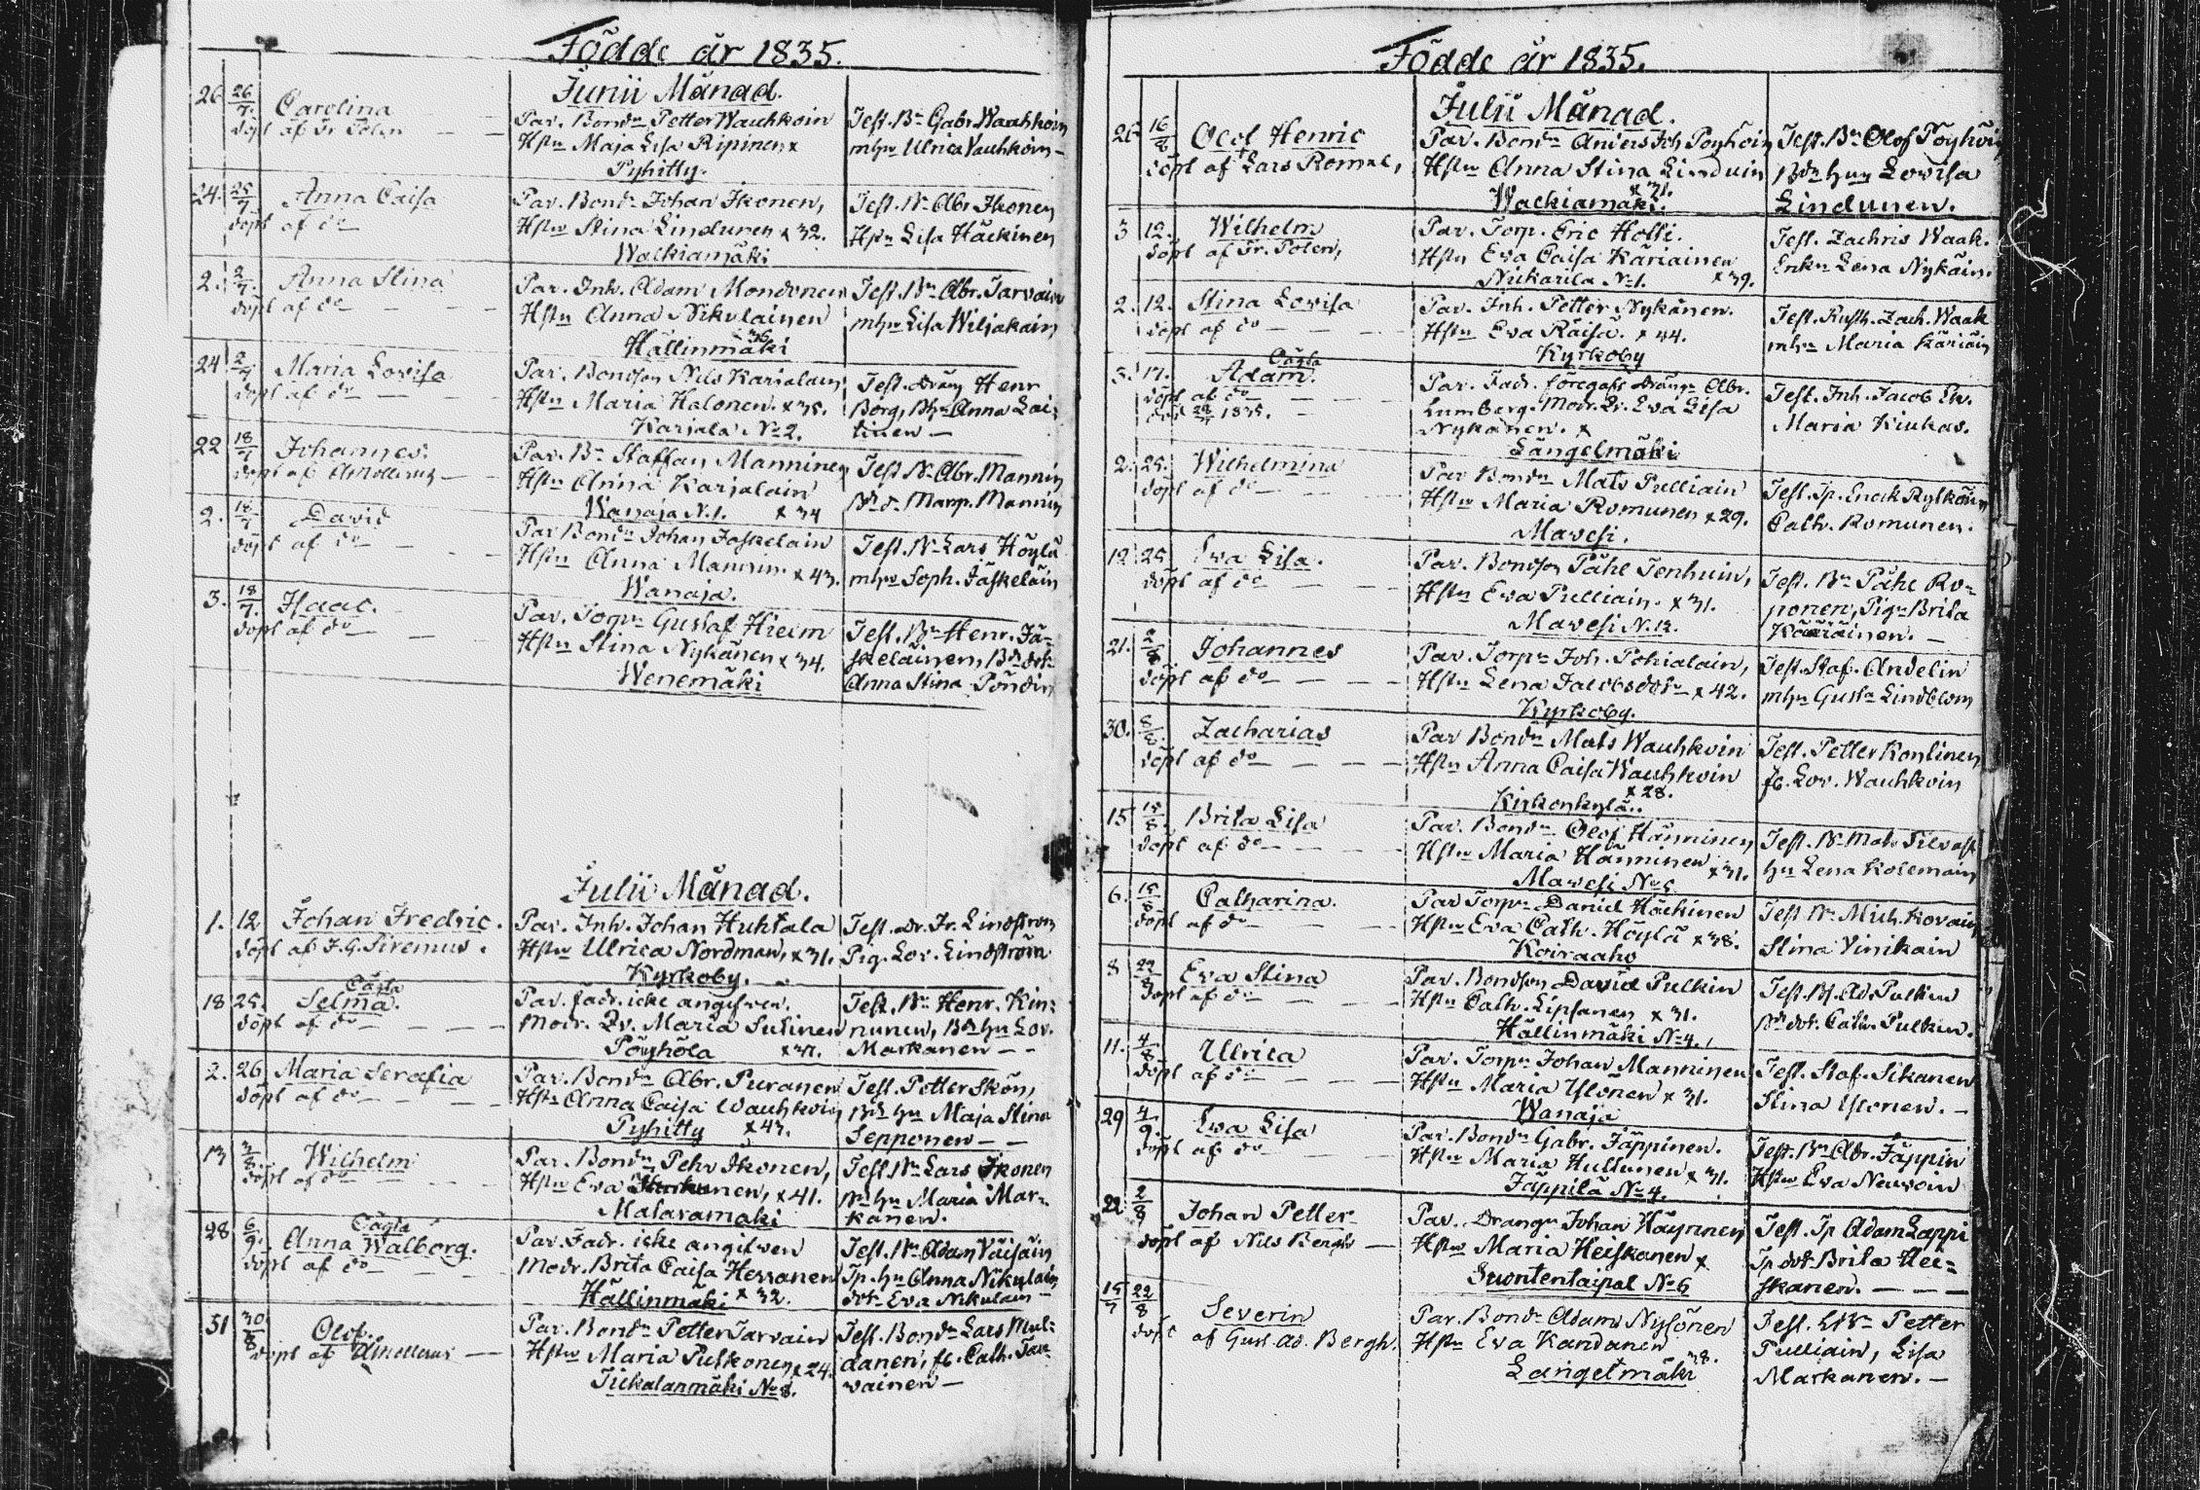 Födde år 1835.
Junii Månad.
26 26/7. Carolina
döpt af Fr Polen
Par. Bondn Petter Wauhkoin
Hstn Maja Lisa Ripinen x
Pyhitty.
Test. Bn Gabr. Wauhkoin
mhu Ulrica Vauhkoin
24. 25/7 Anna Caisa
döpt af do
Par. Bondn Johan Ikonen,
Hstn Stina Lindunen x 32.
Walkiamäki
Test. Bn Abr. Ikonen
Hstn Lisa Häckinen
2. 2/7. Anna Stina
döpt af do
Par. Inh. Adam Mondonen
Hstn Anna Nikulainen
36
Hällinmäki
Test. Bn Abr. Tarvain
mhu Lisa Wiljakain
24 2/7 Maria Lovisa
döpt af do
Par. Bondson Nils Karialain
Hstn Maria Halonen. x 35.
Karjala No 2.
Test. Dräng Henr
Borg, Bhu Anna Lai-
tinen
22 18/7 Johannes.
döpt af AMollerus
Par. Bn Staffan Manninen
Hstn Anna Karjalain
Wanaja N. 1. x 34
Test Bn Abr. Mannin
Bn d. Marg. Mannin
2. 18/7 David
döpt af do
Par Bondn Johan Jäskelain
Hstn Anna Mannin x 43.
Wanaja.
Test. Bn Lars Höylä
mhu Soph. Jäskeläin
3. 18/7. Isaac.
döpt af do
Par. Torpn Gustaf Hieim
Hstn Stina Nykänen x 34.
Wenemäki
Test. Bn Henr. Jä-
skeläinen, Bn dot.
Anna Stina Pöndin
Julii Månad.
1. 12 Johan Fredric.
döpt af F. G. Sirenius.
Par. Inh. Johan Huhtala
Hstn Ulrica Nordman, x 31.
Kyrkoby.
Test. Dr. Fr. Lindström
Pig. Lov. Lindström
18 25. Oägta
Selma.
döpt af do
Par. fadr. icke angifven.
Modr. Qv. Maria Sutinen
Pöyhölä x 37.
Test. Bn Henr. Kin-
nunen, Bn hu Lov.
Markanen
2. 26 Maria Serafia
döpt af do
Par. Bondn Abr. Puranen
Hstn Anna Caisa Wauhkoin
Pyhitty x 43.
Test. Petter Skön,
Bn hu Maja Stina
Sepponen
13 3/8. Wilhelm
döpt af do
Par. Bondn Pehr Ikonen,
Hstn Eva x 41.
Malavamäki
Test Bn Lars Ikonen
Bn hu Maria Mar-
kanen.
28 6/9. Oägta
Anna Walborg.
döpt af do
Par. Fadr. icke angifwen
Modr. Brita Caisa Herranen
Hällinmäki x 32.
Test. Bn Adam Väisäin
Tp. hu Anna Nikulain
dot. Eva Nikulain
31 30/8 Olof.
döpt af AMollerus
Par. Bondn Petter Tarvain
Hstn Maria Pulkonen x 24.
Tickalanmäki No 8.
Test. Bondn Lars Mul-
danen, fl. Cath. Tar-
vainen
Födde år 1835.
Julii Månad.
26 16/8 Olof Henric
döpt af Lars Romae,
Par. Bondn Anders Joh Pöyhöin
Hstn Anna Stina Linduin
x 31.
Wackiamäki.
Test. Bn Olof Pöyhöin
Bdn hun Lovisa
Lindunen.
3 12. Wilhelm
döpt af Fr. Polen,
Par. Torp. Eric Holli.
Hstn Eva Caisa Käriainen
Nickarila No 1. x 39.
Test. Zachris Waak.
Enkn Lena Nykäin.
2. 12. Stina Lovisa
döpt af do
Par. Inh. Petter Nykänen.
Hstn Eva Räisä. x 44.
Kyrkoby
Test. Rusth. Zach. Waak
mhn Maria Käriäin
3. 17. Oägta
Adam.
döpt af do
död 22/7 1835.
Par. Fadr. föregafs Drängn Abr.
Lumberg. Modr. Qv. Eva Lisa
Nykänen. x
Längelmäki
Test. Inh. Jacob Ew.
Maria Kiukas.
2. 25. Wilhelmina
döpt af do
Par Bondn Mats Pulliain
Hstn Maria Romunen x 29.
Mavesi.
Test. Tp. Enock Rytkönen
Cath. Romunen.
12 25 Eva Lisa.
döpt af do
Par. Bondson Påhl Tenhuin,
Hstn Eva Pulliain. x 31.
Mavesi N. 13.
Test. Bn Påhl Ro-
ponen, Pign Brita
Kääriäinen.
21. 2/8 Johannes
döpt af do
Par. Torpn Joh. Pohialain,
Hstn Lena Jacobsdotr x 42.
Kyrkoby.
Test. Staf. Andelin
mhn Gusta Lindblom
30. 8/8. Zacharias
döpt af do
Par Bondn Mats Wauhkoin
Hstn Anna Caisa Wauhkoin
x 28.
Kirkonkylä.
Test. Petter Kontinen
fl. Lov. Wauhkoin
15 15/8. Brita Lisa
döpt af do
Par. Bondn Olof Hänninen
Hstn Maria Hänninen x 31.
Mavesi No 5
Test. Bn Mats Silvast
hu Lena Kolemain
6. 15/8 Catharina.
döpt af do
Par Torpn Daniel Häckinen
Hstn Eva Cath. Höylä x 38.
Koiraaho
Test Bn Mich. Kovain
Stina Vinikain
8 22/8 Eva Stina
döpt af do
Par. Bondson David Pulkin
Hstn Cath. Lipsanen x 31.
Hällinmäki No 4.
Test. Bf. Ad. Pulkin
Bn dot. Cath. Pulkin.
11. 4/8. Ulrica
döpt af do
Par. Torpn Johan Manninen
Hstn Maria Ylönen x 31.
Wanaja
Test. Staf. Sikanen
Stina Ylönen.
29 4/9. Eva Lisa
döpt af do
Par. Bondn Gabr. Jäppinen.
Hstn Maria Hultunen x 31.
Jäppilä No 4.
Test. Bn Abr. Jäppin
Hstn Eva Neuvoin
22 2/8 Johan Petter
döpt af Nils Bergh
Par. Drängn Johan Häyrinen
Hstn Maria Heiskanen x
Suontentaipal No 6
Test. Tp Adam Lappi
Tp dot. Brita Hei-
skanen.
15/7 22/8 Severin
döpt af Gust. Ad. Bergh.
Par. Bondn Adam Nysönen
Hstn Eva Kandanen
38.
Längelmäki
Test. Bn Petter
Pulliain, Lisa
Markanen.